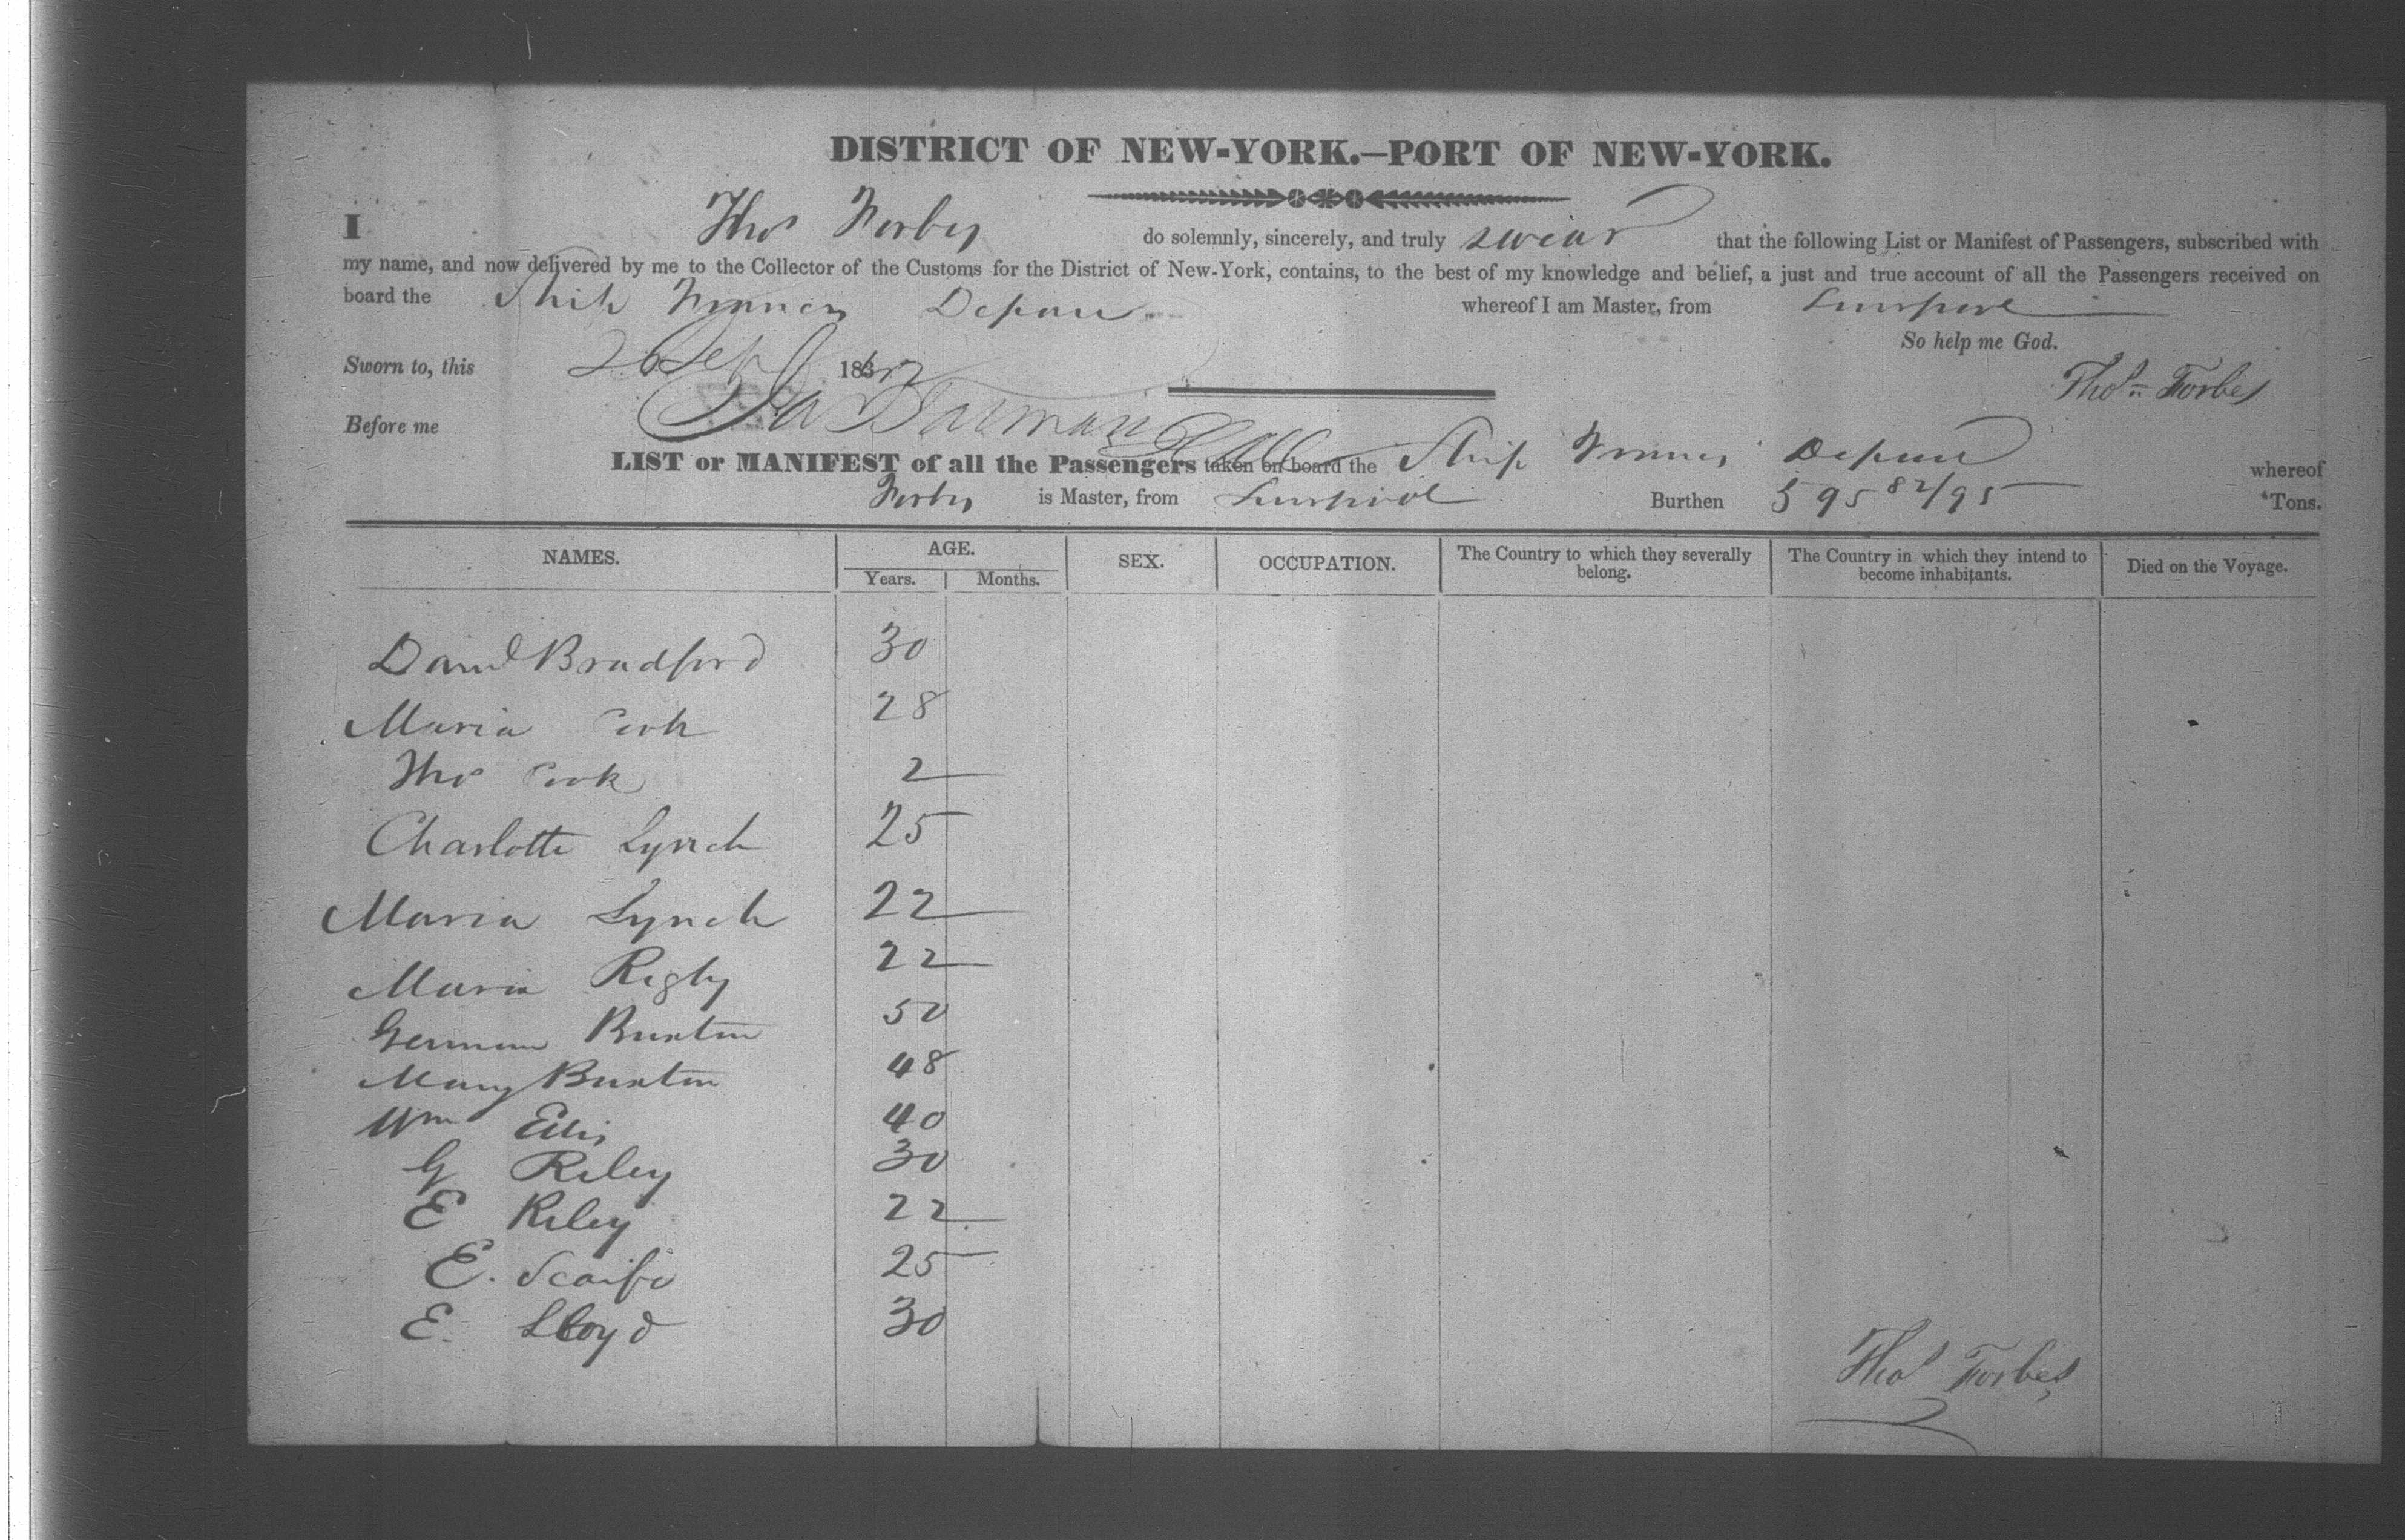 DISTRICT OF NEW-YORK.—PORT OF NEW-YORK.
I Thos Forbes do solemnly, sincerely, and truly swear that the following List or Manifest of Passengers, subscribed with
my name, and now delivered by me to the Collector of the Customs for the District of New-York, contains, to the best of my knowledge and belief, a just and true account of all the Passengers received on
board the Ship Francis Depau whereof I am Master, from Liverpool
So help me God.
Sworn to, this 26 Sept 183
Thos Forbes
Before me
LIST or MANIFEST of all the Passengers taken on board the Ship Francis Depau whereof
Forbes is Master, from Liverpool Burthen 595 82/95 Tons.
NAMES. AGE. SEX. OCCUPATION. The Country to which they severally belong. The Country in which they intend to become inhabitants. Died on the Voyage.
Years. Months.
Danl Bradford 30
Maria Cook 28
Thos Cook 2
Charlotte Lynch 25
Maria Lynch 22
Maria Rigby 22
German Buxton 50
Mary Buxton 48
Wm Ellis 40
G Riley 30
E Riley 22
E. Scaife 25
E. Lloyd 30
Thos Forbes